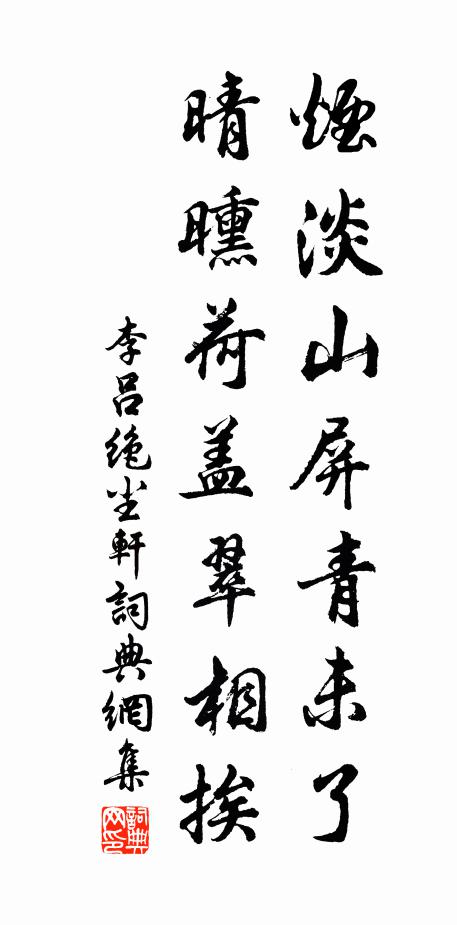 煙淡山屏青未了
晴曛荷盖翠相挨
李吕绝尘軒詞典網集
詞典网印